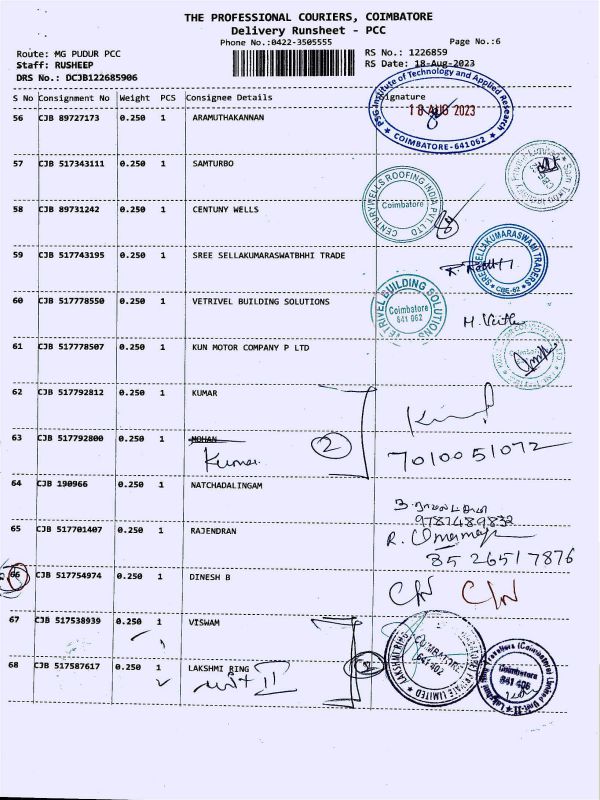 THE PROFESSIONAL COURIERS, COIMBATORE
Delivery Runsheet - PCC
Phone No.:0422-3505555 Page No.:6
Route: MG PUDUR PCC RS No.: 1226859
Staff: RUSHEEP RS Date: 18-Aug-2023
DRS No.: DCJB122685906
S No Consignment No Weight PCS Consignee Details Signature
56 CJB 89727173 0.250 1 ARAMUTHAKANNAN
PSG Institute of Technology and Applied Research
18 AUG 2023
COIMBATORE-641062
57 CJB 517343111 0.250 1 SAMTURBO
58 CJB 89731242 0.250 1 CENTUNY WELLS
CENTURYWELLS ROOFING INDIA PVT LTD
Coimbatore
59 CJB 517743195 0.250 1 SREE SELLAKUMARASWATBHHI TRADE
SREE SELLAKUMARASWAMI TRADERS
CBE-62
60 CJB 517778550 0.250 1 VETRIVEL BUILDING SOLUTIONS
VETRIVEL BUILDING SOLUTIONS
Coimbatore
641 062
61 CJB 517778507 0.250 1 KUN MOTOR COMPANY P LTD
62 CJB 517792812 0.250 1 KUMAR
63 CJB 517792800 0.250 1 MOHAN
Kumar 2 7010051072
64 CJB 190966 0.250 1 NATCHADALINGAM
9787489832
65 CJB 517701407 0.250 1 RAJENDRAN
85 26517876
66 CJB 517754974 0.250 1 DINESH B
67 CJB 517538939 0.250 1 VISWAM
68 CJB 517587617 0.250 1 LAKSHMI RING
யூனிட் II 2
LAKSHMI RING
COIMBATORE
641 402
PRIVATE LIMITED
Lakshmi Ring Travellers (Coimbatore) Limited Unit-II
Coimbatore
641 406